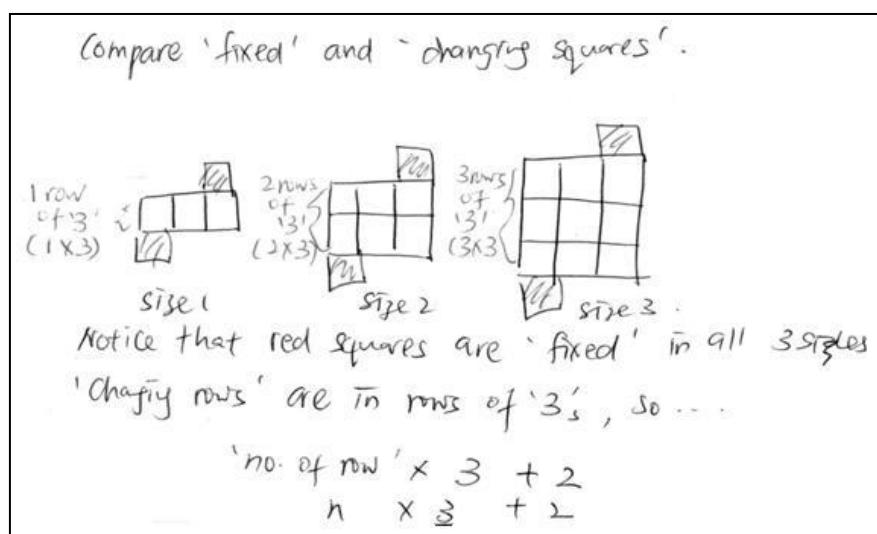 Compare 'fixed' and 'changing squares'.
1 row of '3' (1 x 3)
2 rows of '3' (2 x 3)
3 rows of '3' (3 x 3
size 1
size 2
size 3.
Notice that red squares are 'fixed' in all 3
'Chagiy rows' are in rows of '3's, so ....
'no. of row' x 3 + 2
n x 3 + 2